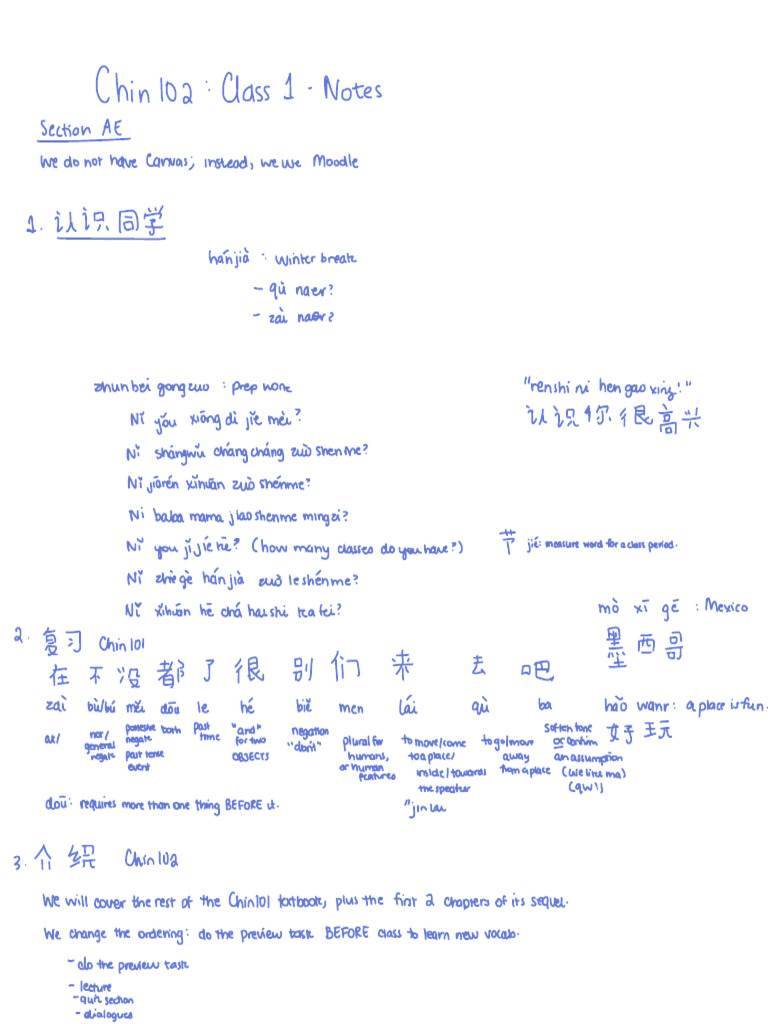 Chin 102 : Class 1 - Notes
Section AE
We do not have Canvas; instead, we use Moodle
1. 认识同学
hánjià : winter break
- qù naer?
- zài naer?
zhunbei gongzuo : prep work
Nǐ yǒu xiōng dì jiě mèi?
Ni shàngwǔ cháng cháng zuò shenme?
Ni jiārén xǐhuān zuò shénme?
Ni baba mama jiao shenme mingzi?
Nǐ you jǐ jié kè? (how many classes do you have?)
Nǐ zhè gè hánjià zuò le shénme?
Nǐ xǐhuān hē chá hai shi ka fei?
"renshi ni hen gao xing!"
认识你很高兴
节 jié: measure word for a class period.
mò xī gē : Mexico
墨西哥
2. 复习 Chin 101
在 不 没 都 了 很 别 们 来 去 吧
zaì bù/bú méi dōu le hé bié men lái qù ba hǎo wanr: a place is fun.
at/ not/ general negate possessive negate past tense event both past time "and" for two OBJECTS negation "don't" plural for humans, or human features to move/come to a place/ inside/towards the speaker to go/move away from a place soften tone or confirm an assumption (use like ma) 好玩
"jin lai
dōu: requires more than one thing BEFORE it.
3. 介绍 Chin 102
We will cover the rest of the Chin101 textbook, plus the first 2 chapters of its sequel.
We change the ordering: do the preview task BEFORE class to learn new vocab.
- do the preview task
- lecture
- quiz section
- dialogues